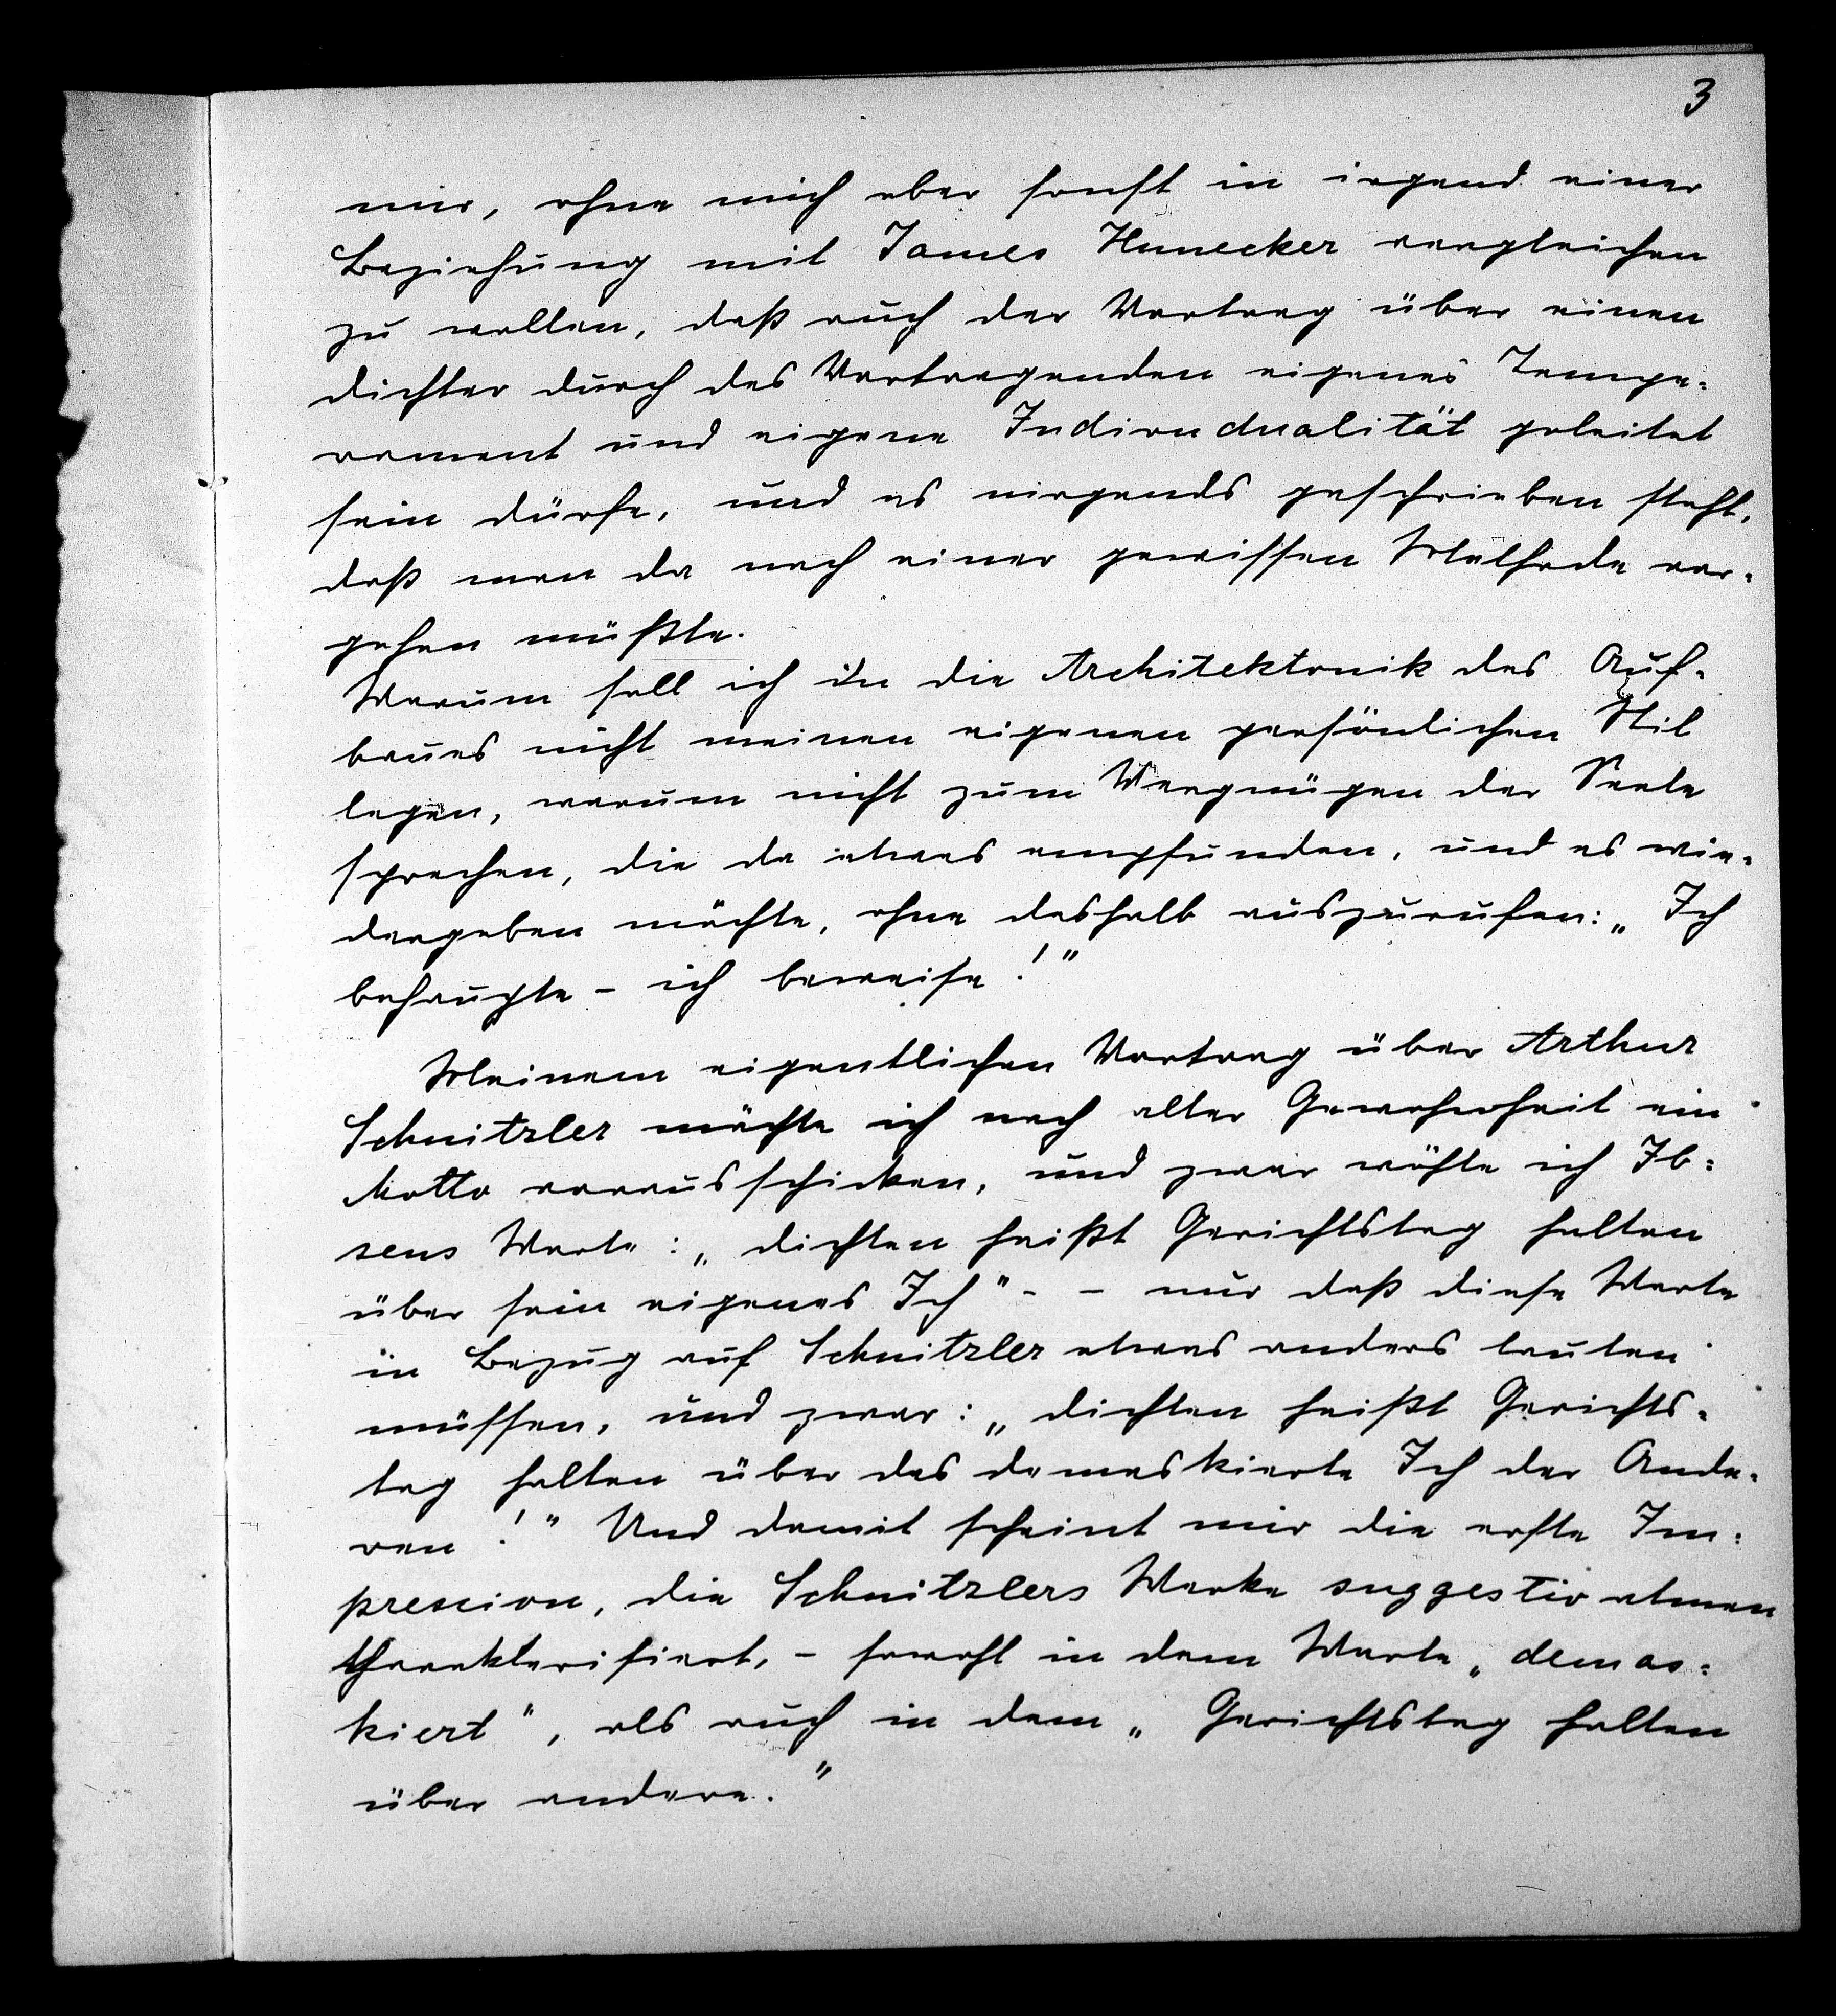 3
mir, ohne mich aber sonst in irgend einer
Beziehung mit James Hunecker vergleichen
zu wollen, daß auch der Vortrag über einen
Dichter durch des Vortragenden eigenes Tempe=
rament und eigene Individualität geleitet
sein dürfe, und es nirgends geschrieben steht,
daß man da nach einer gewissen Methode vor=
gehen müßte.
Warum soll ich in die Architektonik des Auf=
baues nicht meinen eigenen persönlichen Stil
legen, warum nicht zum Vergnügen der Seele
sprechen, die da etwas empfunden, und es wie=
dergeben möchte, ohne deshalb auszurufen: „Ich
behaupte – ich beweise!"
Meinem eigentlichen Vortrag über Arthur
Schnitzler möchte ich nach alter Gewohnheit ein
Motto vorausschicken, und zwar wähle ich Ib=
sens Worte: „Dichten heißt Gerichtstag halten
über sein eigenes Ich" - – nur daß diese Worte
in Bezug auf Schnitzler etwas anders lauten
müssen, und zwar: „Dichten heißt Gerichts=
tag halten über das demaskierte Ich der Ande=
ren!" Und damit scheint mir die erste Im=
pression, die Schnitzlers Werke suggestiv atmen
charakterisiert, – sowohl in dem Worte „demas=
kiert", als auch in dem „Gerichtstag halten
über andere."